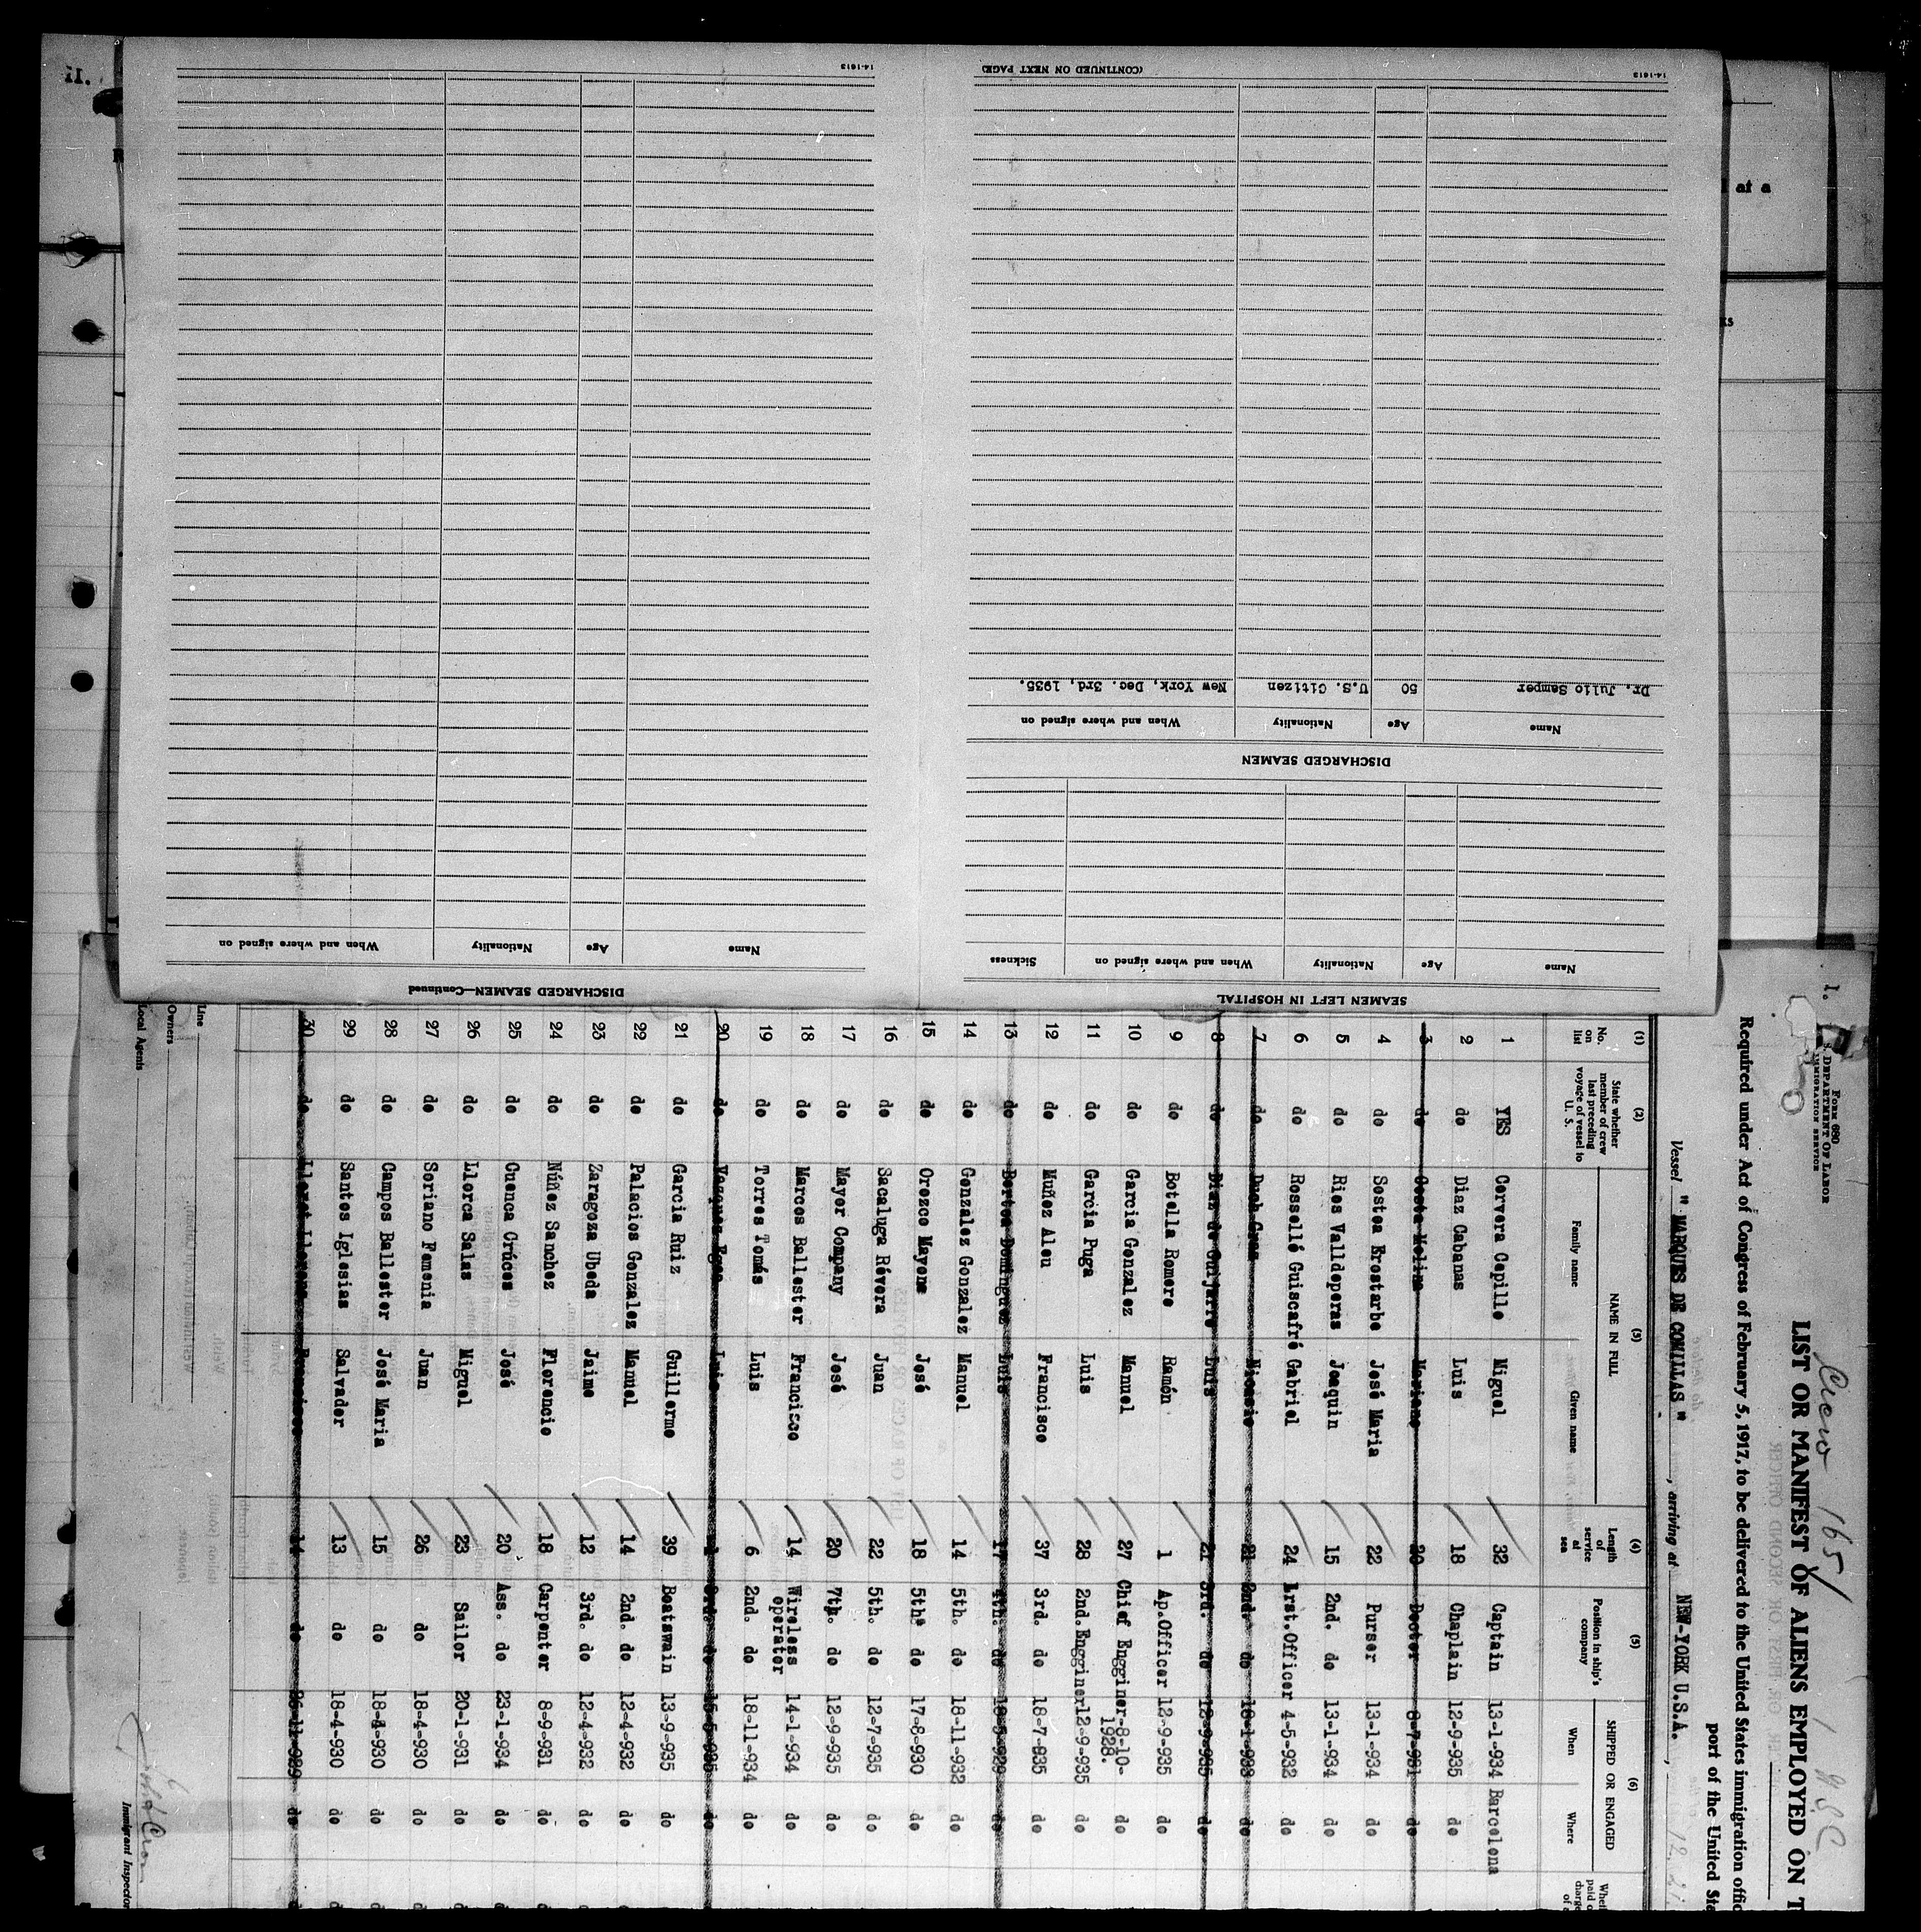 14-1613
(CONTINUED ON NEXT PAGE)
14-1613
SEAMEN LEFT IN HOSPITAL
Name Age Nationality When and where signed on Sickness
DISCHARGED SEAMEN
Name Age Nationality When and where signed on
Dr. Julio Samper 50 U.S. Citizen New York, Dec. 3rd, 1935.
DISCHARGED SEAMEN—Continued
Name Age Nationality When and where signed on
at a
Form 680
DEPARTMENT OF LABOR
IMMIGRATION SERVICE
Crew 165
LIST OR MANIFEST OF ALIENS EMPLOYED ON T
Required under Act of Congress of February 5, 1917, to be delivered to the United States immigration offic
port of the United Sta
Vessel " MARQUES DE COMILLAS " , arriving at NEW-YORK U.S.A. ,
(1) (2) (3) (4) (5) (6)
No. on list State whether member of crew last preceding voyage of vessel to U. S. NAME IN FULL Family name Given name Length of service at sea Position in ship's company SHIPPED OR ENGAGED When Where
1 YES Cervera Cepille Miguel 32 Captain 13-1-934 Barcelona
2 do Diaz Cabanas Luis 18 Chaplain 12-9-935 do
3 do Costa Molina Mariano 20 Doctor 8-7-931 do
4 do Sostoa Erostarbe José Maria 22 Purser 13-1-934 do
5 do Rios Valldeperas Joaquin 15 2nd. do 13-1-934 do
6 do Rosselló Guiscafré Gabriel 24 1rst.Officer 4-5-932 do
7 do Duch Grau Nicasio 21 2nd. do 18-1-933 do
8 do Diaz de Guijarro Luis 21 3rd. do 12-9-935 do
9 do Botella Romero Ramón 1 Ap.Officer 12-9-935 do
10 do Garcia Gonzalez Manuel 27 Chief Engginer-8-10-1928. do
11 do Garcia Puga Luis 28 2nd.Engginer12-9-935 do
12 do Muñoz Aleu Francisco 37 3rd. do 18-7-935 do
13 do Bertoa Dominguez Luis 17 4th. do 18-5-929 do
14 do Gonzalez Gonzalez Manuel 14 5th. do 18-11-932 do
15 do Orozco Mayome José 18 5th. do 17-8-930 do
16 do Sacaluga Révera Juan 22 5th. do 12-7-935 do
17 do Mayor Company José 20 7th. do 12-9-935 do
18 do Marcos Ballester Francisco 14 Wireless operator 14-1-934 do
19 do Torres Tomás Luis 6 2nd. do 18-11-934 do
20 do Vazquez Egea Luis 3rd. do 15-5-935 do
21 do Garcia Ruiz Guillermo 39 Boatswain 13-9-935 do
22 do Palacios Gonzalez Manuel 14 2nd. do 12-4-932 do
23 do Zaragoza Ubeda Jaime 12 3rd. do 12-4-932 do
24 do Núñez Sanchez Florencio 18 Carpenter 8-9-931 do
25 do Cuenca Crúces José 20 Ass. do 23-1-934 do
26 do Llorca Salas Miguel 23 Sailor 20-1-931 do
27 do Soriano Femenia Juan 26 do 18-4-930 do
28 do Campos Ballester José Maria 15 do 18-4-930 do
29 do Santos Iglesias Salvador 13 do 18-4-930 do
30 do Lloret Llorens Francisco 14 do 26-11-929 do
Line
Owners
Local Agents
Immigrant Inspector